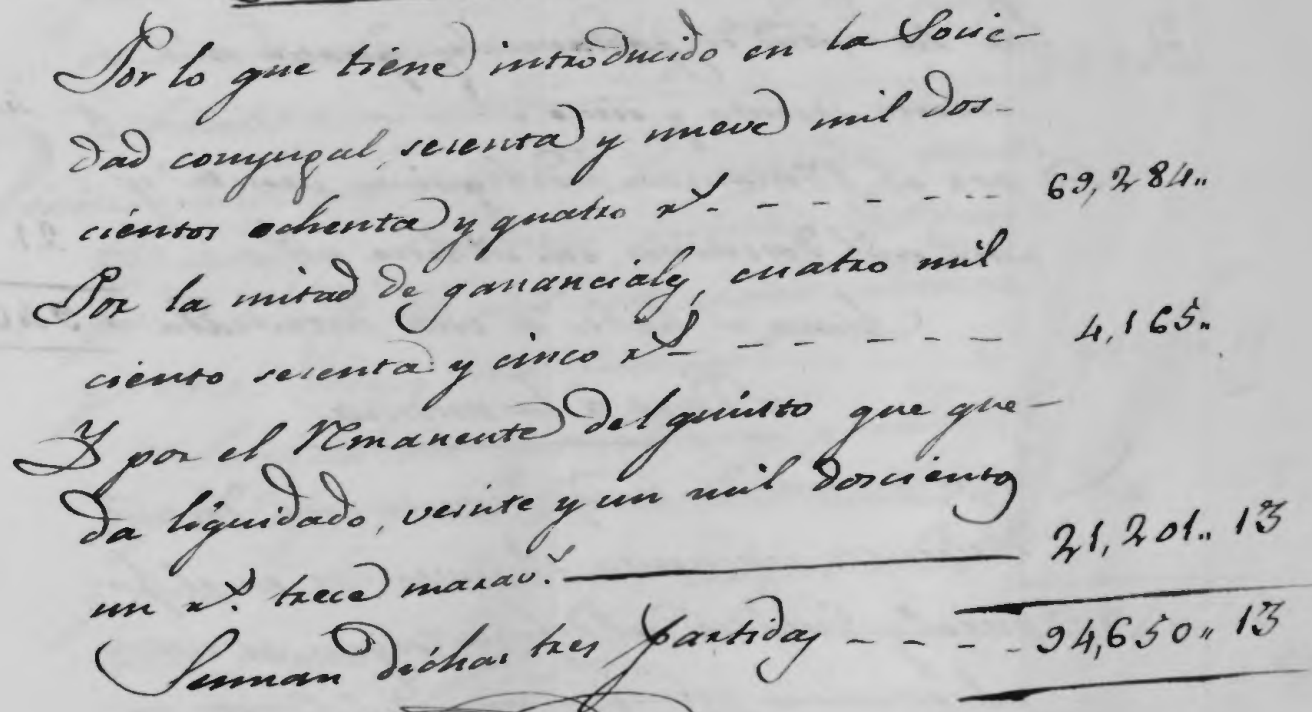 Por lo que tiene introducido en la Socie-
dad conyugal, sesenta y nueve mil dos-
cientos ochenta y quatro rs. - - - - - - - 69,284..
Por la mitad de gananciales, cuatro mil
ciento sesenta y cinco rs. - - - - - - 4,165..
Y por el Remanente del quinto que que-
da liquidado, veinte y un mil doscientos
un rs. trece marav.s 21,201.. 13
Suman dichas tres partidas - - - - 94,650.. 13